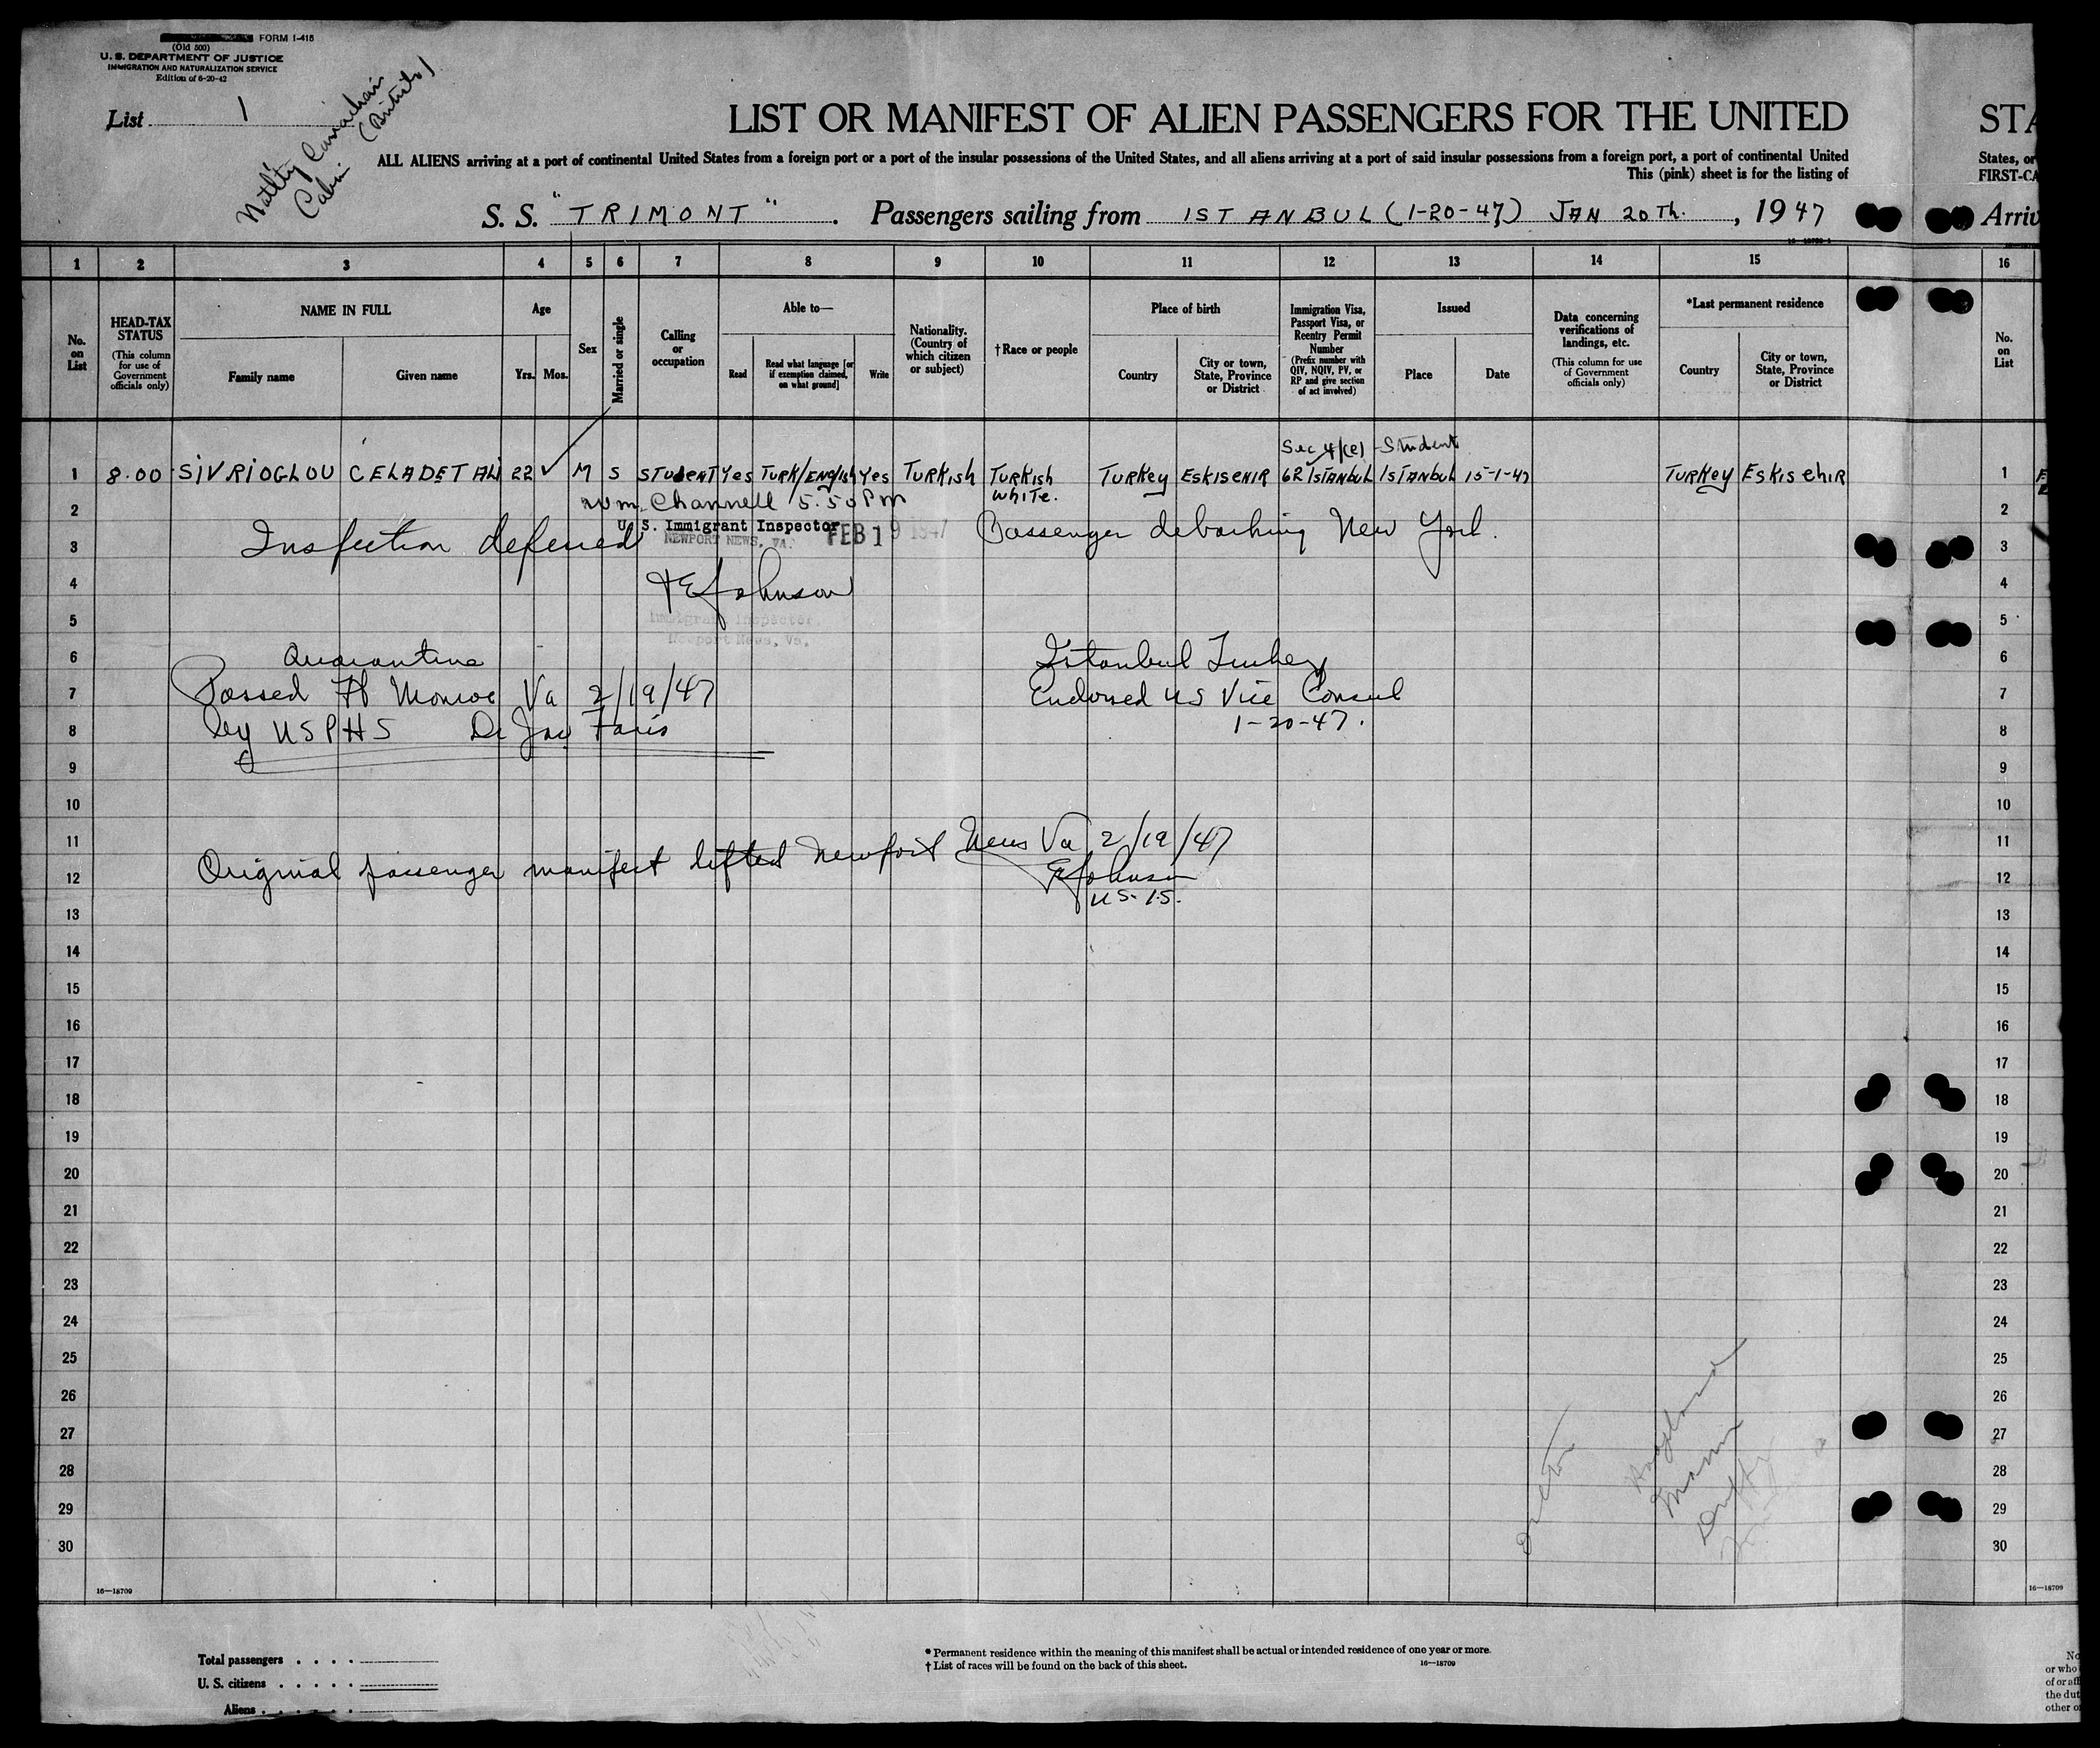 FORM I-415
(Old 500)
U. S. DEPARTMENT OF JUSTICE
IMMIGRATION AND NATURALIZATION SERVICE
Edition of 6-20-42
List 1
Natlty Canadian
Cabin (British)
LIST OR MANIFEST OF ALIEN PASSENGERS FOR THE UNITED
STA
ALL ALIENS arriving at a port of continental United States from a foreign port or a port of the insular possessions of the United States, and all aliens arriving at a port of said insular possessions from a foreign port, a port of continental United
States, or
This (pink) sheet is for the listing of
FIRST-CA
S. S. "TRIMONT". Passengers sailing from ISTANBUL (1-20-47) JAN 20Th., 1947
Arriv
1 2 3 4 5 6 7 8 9 10 11 12 13 14 15 16
No. on List
HEAD-TAX STATUS
(This column for use of Government officials only)
NAME IN FULL
Family name
Given name
Age
Yrs. Mos.
Sex
Married or single
Calling or occupation
Able to—
Read
Read what language [or if exemption claimed, on what ground]
Write
Nationality. (Country of which citizen or subject)
†Race or people
Place of birth
Country
City or town, State, Province or District
Immigration Visa, Passport Visa, or Reentry Permit Number
(Prefix number with QIV, NQIV, PV, or RP and give section of act involved)
Issued
Place
Date
Data concerning verifications of landings, etc.
(This column for use of Government officials only)
*Last permanent residence
Country
City or town, State, Province or District
No. on List
Sec 4(e) - Student
1 8.00 SIVRIOGLOU CELADET ALI 22 ✓ M S STUDENT Yes TURK/ENGlish Yes TURKISH TURKISH TURKEY ESKISEHIR 62 ISTANBUL ISTANBUL 15-1-47 TURKEY ESKISEHIR 1
white.
Wm. Channell 5:50 PM
2 2
U. S. Immigrant Inspector
NEWPORT NEWS, VA. FEB 19 1947
3 Inspection deferred Passenger debarking New York. 3
4 4
E Johnson
5 5
Immigrant Inspector
Newport News, Va.
6 Quarantine Istanbul Turkey 6
7 Passed Ft Monroe Va 2/19/47 Endorsed US Vice Consul 7
8 by USPHS Dr Jay Faris 1-20-47. 8
9 9
10 10
11 11
12 Original passenger manifest lifted Newport News Va 2/19/47 12
E Johnson
U.S. I.S.
13 13
14 14
15 15
16 16
17 17
18 18
19 19
20 20
21 21
22 22
23 23
24 24
25 25
26 26
27 27
28 28
29 29
30 30
16—18709
16—18709
Total passengers . . . .
U. S. citizens . . . . .
Aliens . . . . . .
* Permanent residence within the meaning of this manifest shall be actual or intended residence of one year or more.
† List of races will be found on the back of this sheet.
16—18709
No
or who
of or aff
the dut
other o